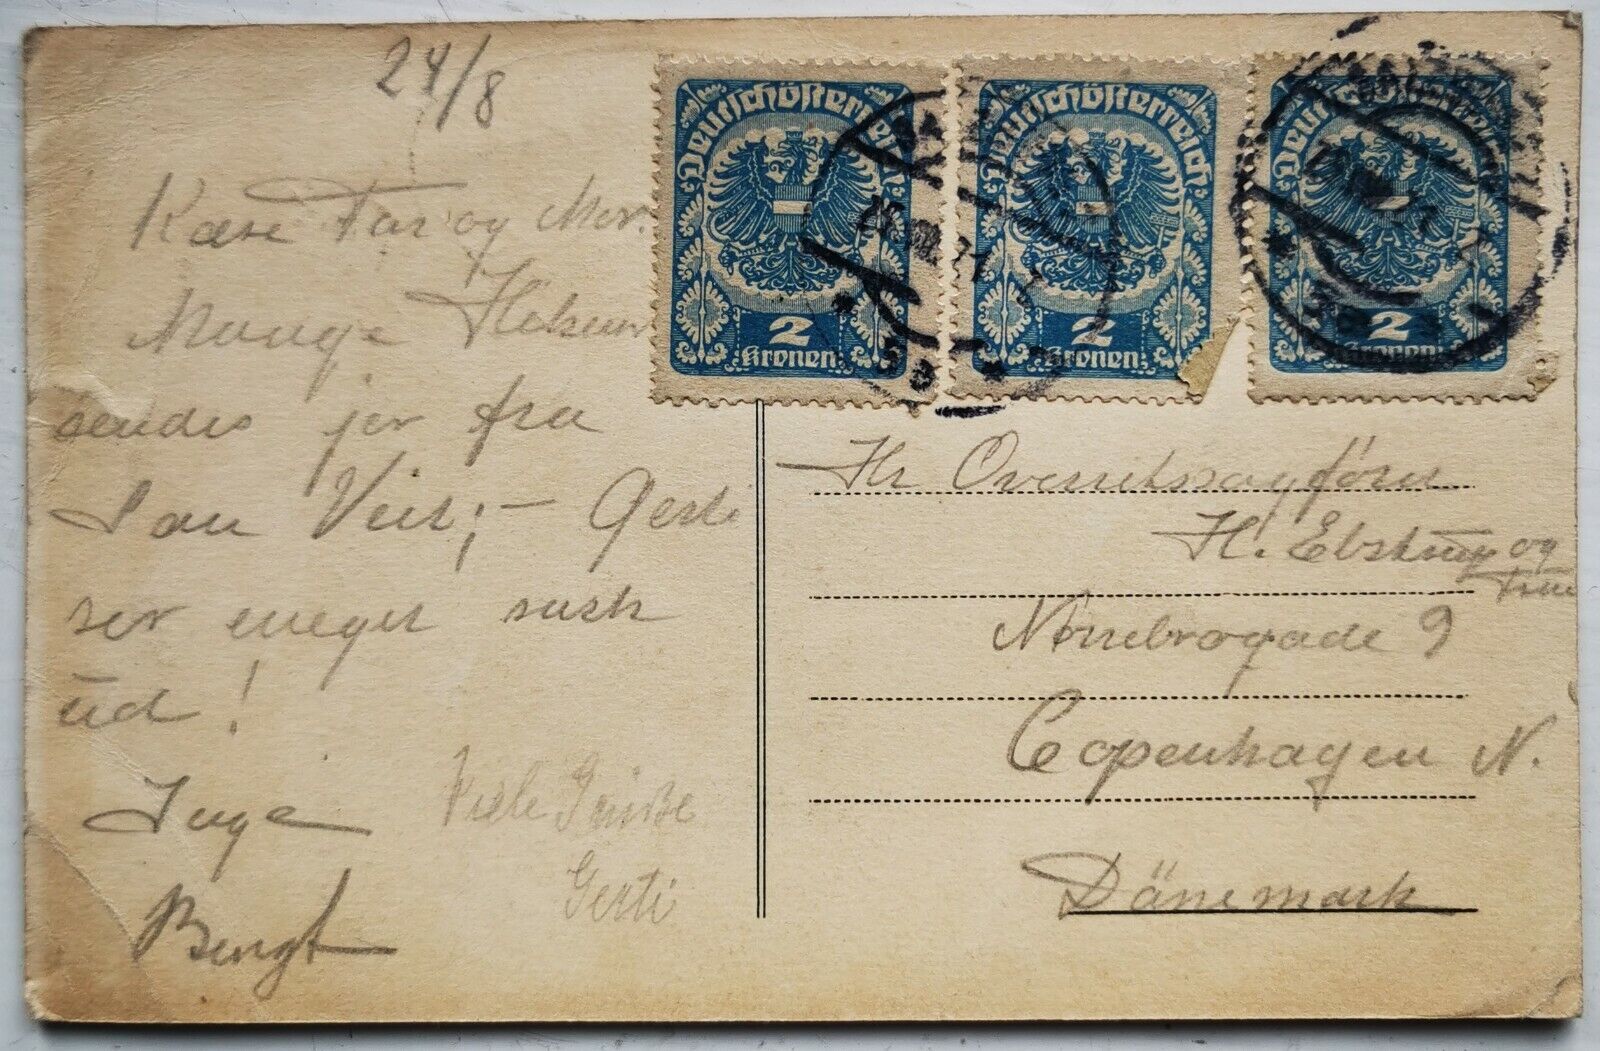 24/8
Kære Far og Mor.
Mange Hilsener
sendes jer fra
San Veit; – Gerti
ser meget rask
ud!
Inge
Bengt
Viele Grüße
Gerti
Deutschösterreich
2
Kronen
Deutschösterreich
2
Kronen
Deutschösterreich
2
Kronen
Hr Overretssagfører
H. Ebstrup og
Frue
Nørrebrogade 9
Copenhagen N.
Dänemark